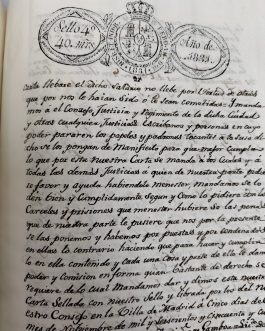 Sello 4º
40. mrs.
Año de
1833.
1831.
Carta llebare el dicho Salario no llebe por el Salario de otras
que por nos le haian sido o le sean cometidas: I manda-
mos á el Consejo, Justicia y Regimiento de la dicha Ciudad
y otras cualquier Justicias Escribanos y personas en cuyo
poder pararen los papeles y padrones tocante á lo suso di-
cho se los pongan de Manifiesto para que mejor Cumplan
lo que por esta Nuestra Carta se manda á los Cuales y á
todas las demás Justicias á quien de nuestra parte pidie-
se favor y ayuda habiendola menester, Mandamos se lo
den bien y Cumplidamente Segun y Como lo pidiere con las
Carceles y prisiones que menester hubiere so las penas
que de nuestra parte le pusiere que nos por la presente
se las ponemos y habemos por puestas y por condenados
en ellas lo contrario haciendo que para hacer y cumplir
lo en ella contenido y cada una cosa y parte de ella le damos
poder y Comision en forma quan bastante de derecho se
requiere de lo cual Mandamos dar y dimos esta nuestra
Carta Sellada con Nuestro Sello y librada por los del Nu-
estro Consejo en la Villa de Madrid á Cinco dias del
mes de Noviembre de mil y seiscientos y Cincuenta y